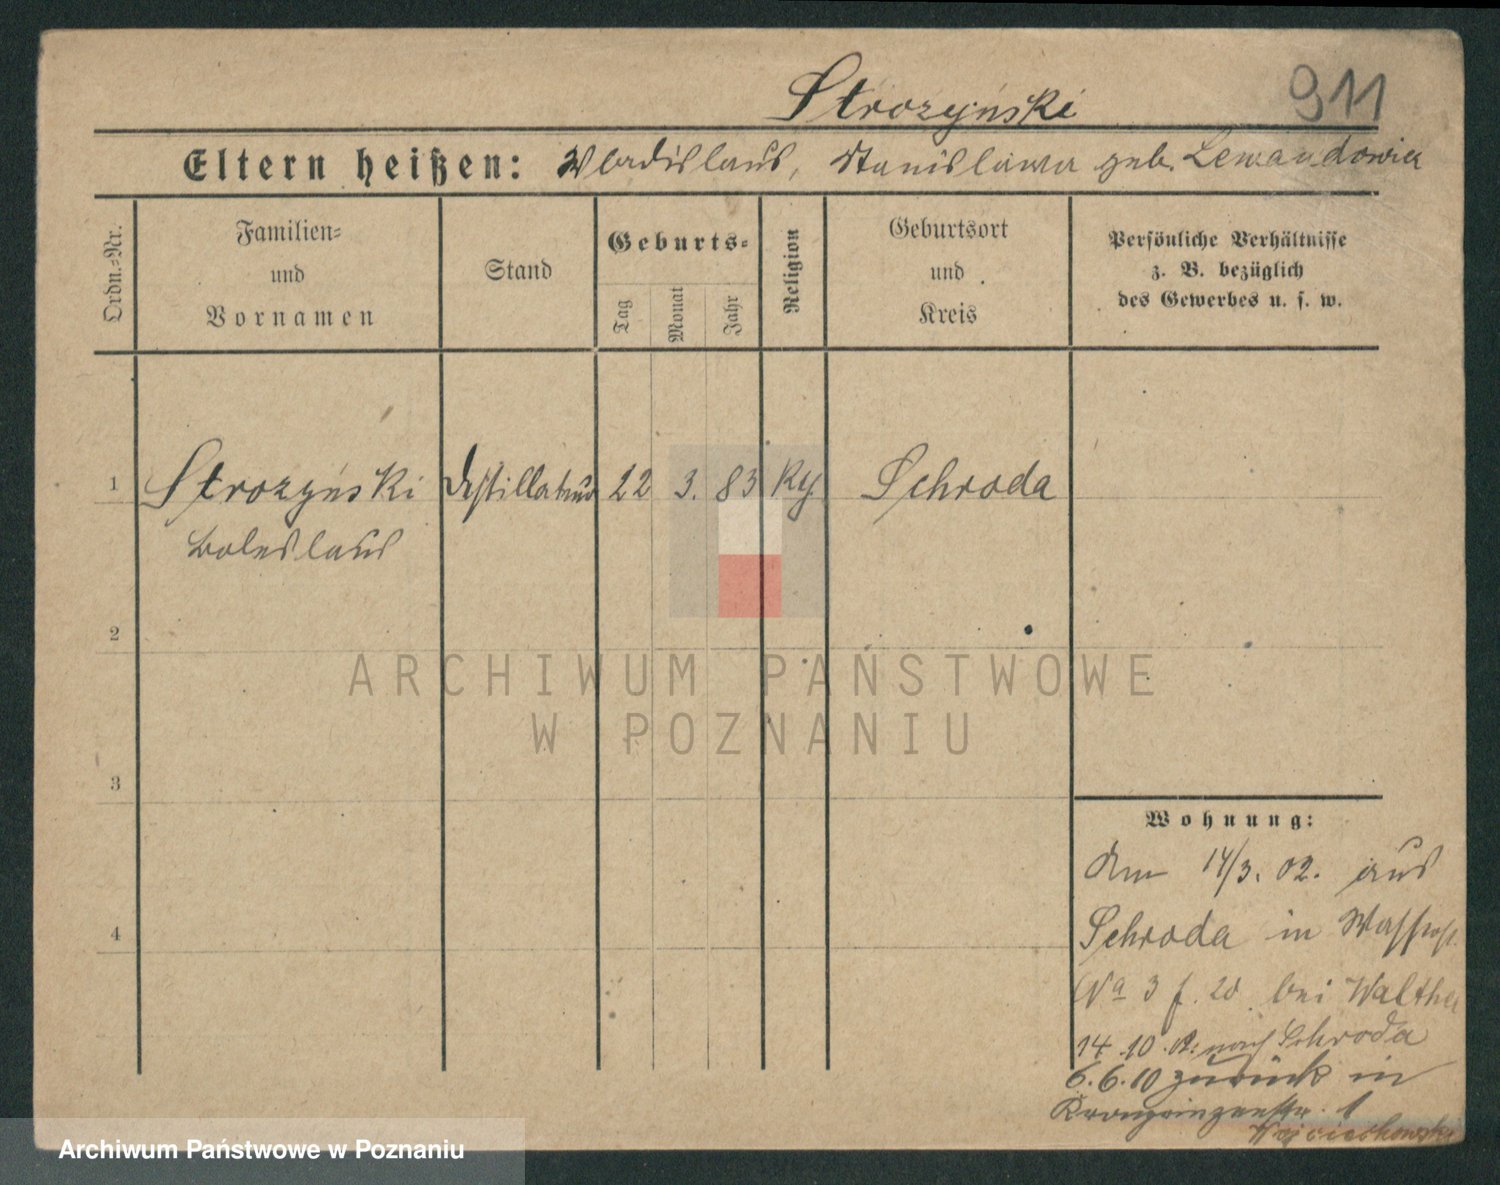 Strozyński 911
Eltern heißen: Wladislaus, Stanislawa geb. Lewandowicz
Ordn.-Nr.
Familien-
und
Vornamen
Stand
Geburts-
Tag
Monat
Jahr
Religion
Geburtsort
und
Kreis
Persönliche Verhältnisse
z. B. bezüglich
des Gewerbes u. s. w.
1 Strozyński Destillateur 22 3. 83 Schroda
Boleslaus
2
3
4
Wohnung:
14/3. 02. aus
Schroda in
No 3 f. 20 bei Walther
14.10. nach Schroda
6.6.10 zurück in
Kronprinzenstr. 1
Wojciechowski
ARCHIWUM PAŃSTWOWE
W POZNANIU
Archiwum Państwowe w Poznaniu